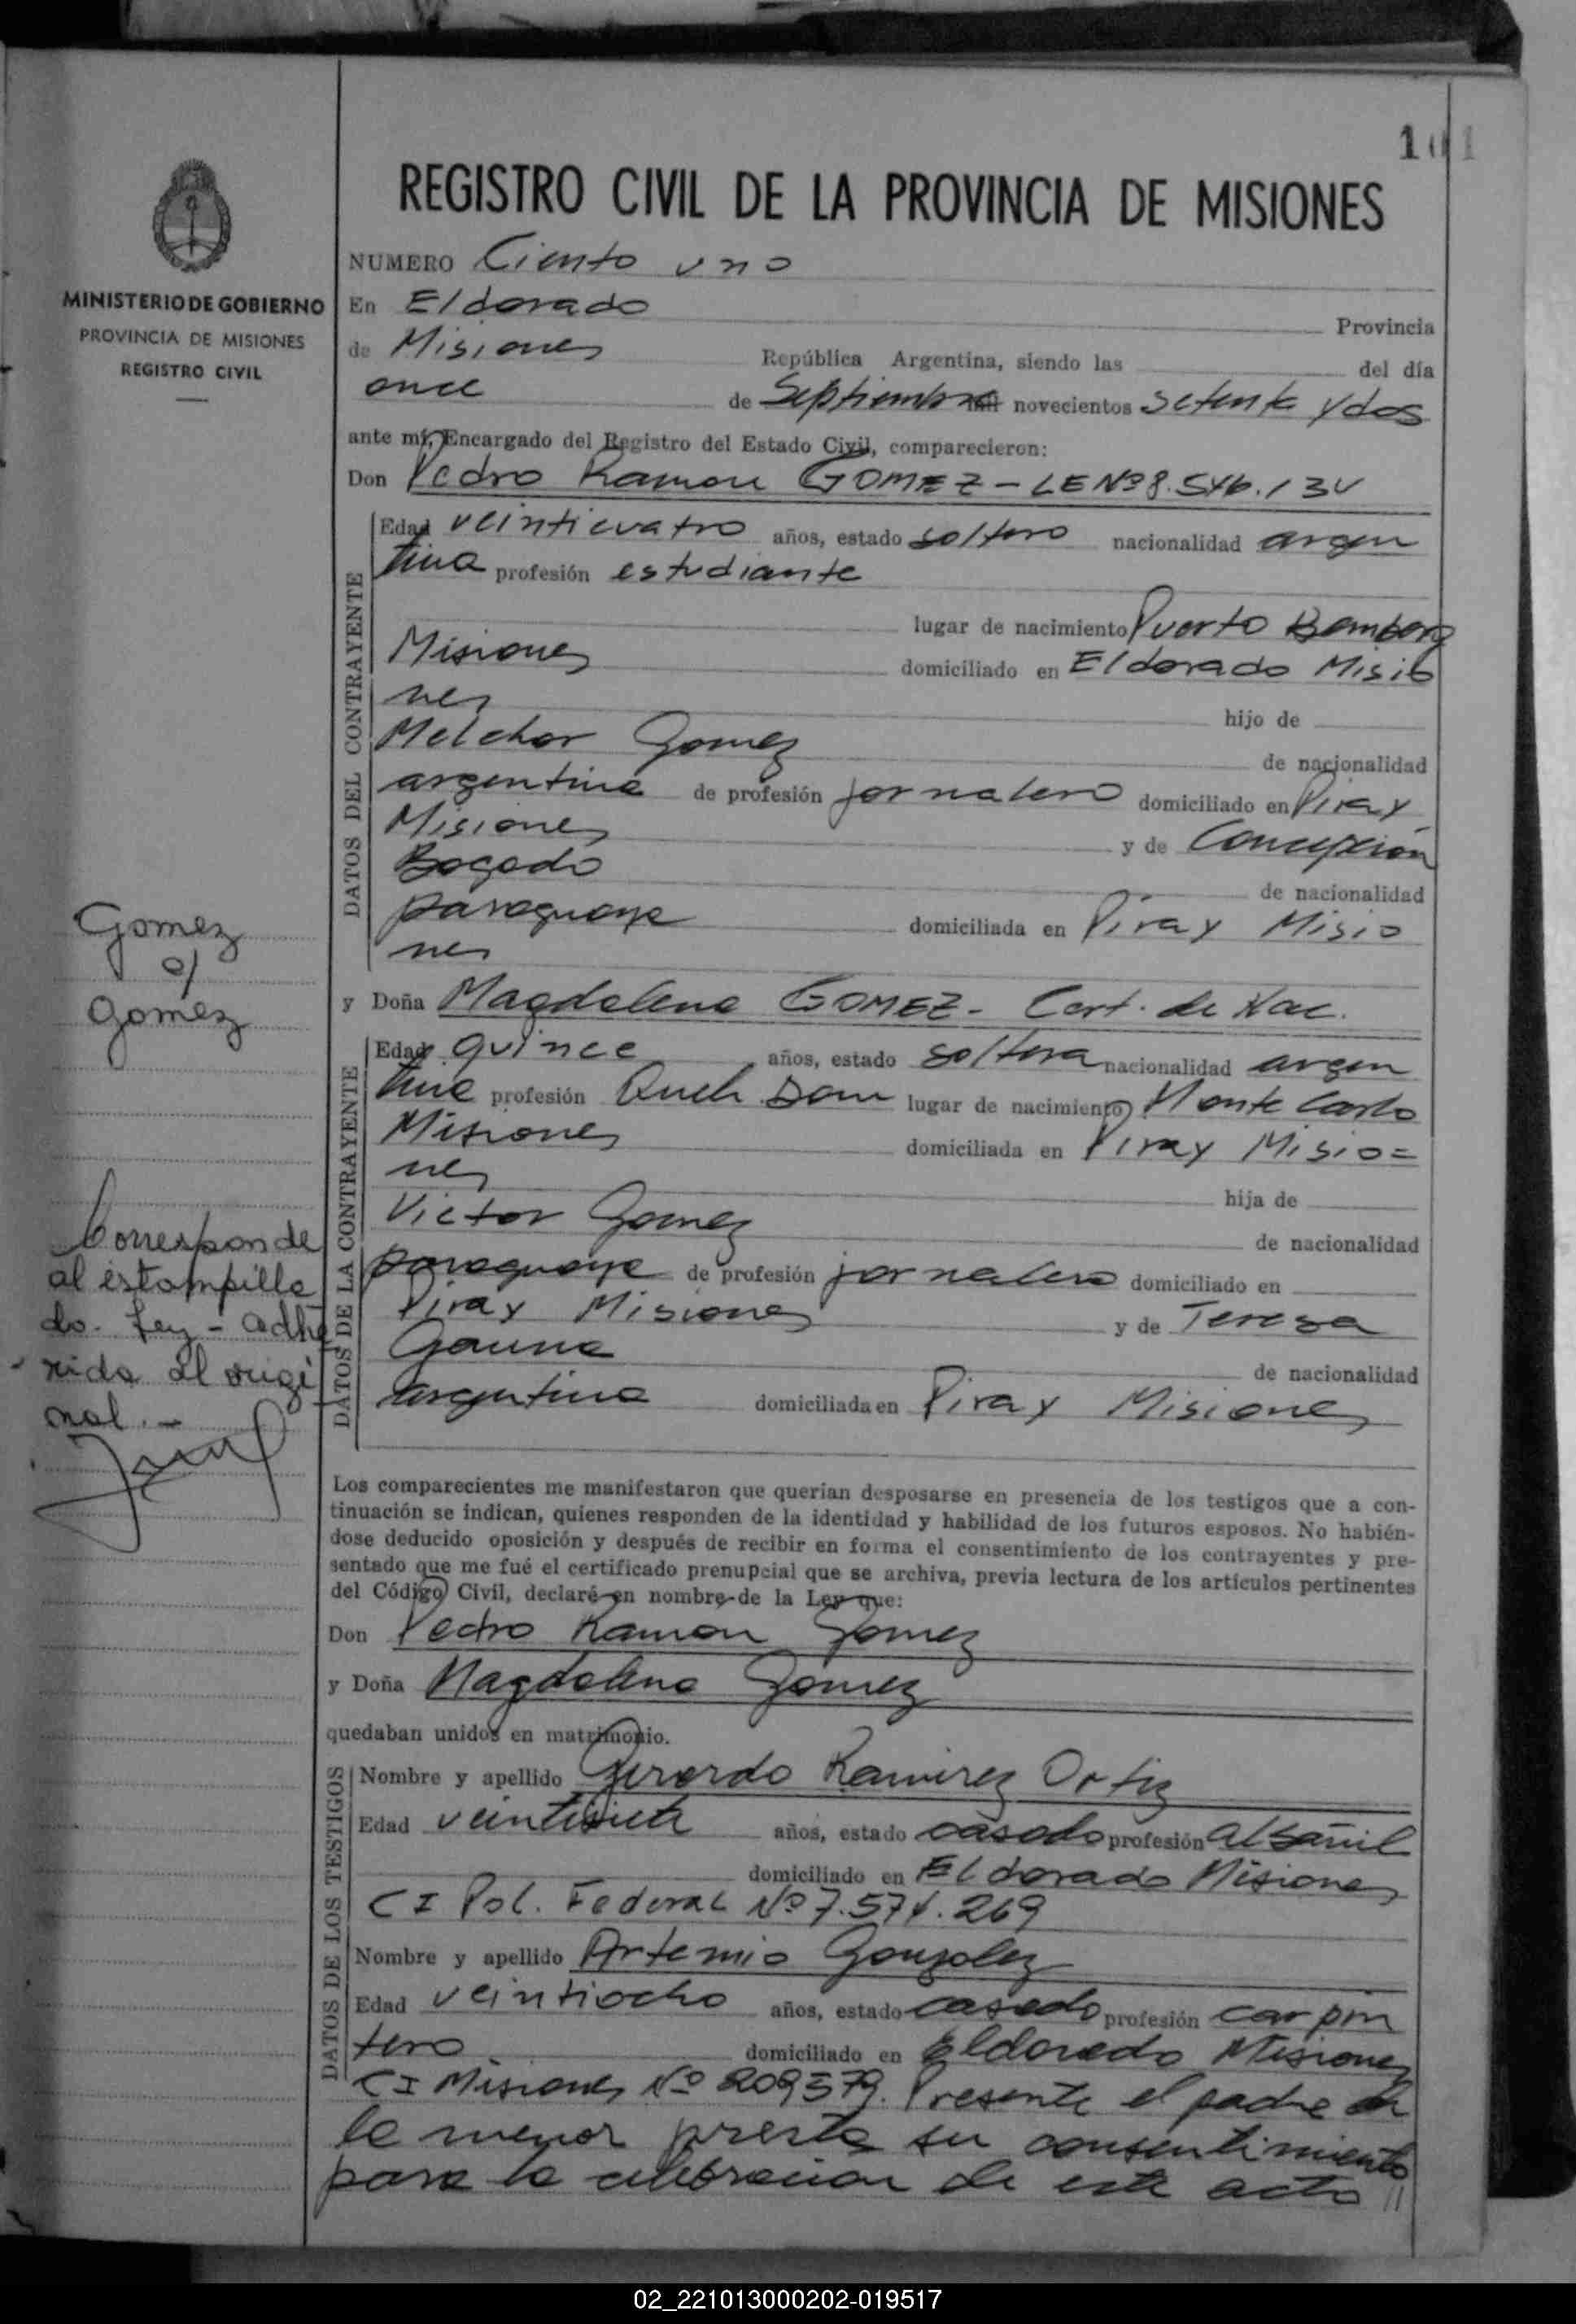 101
REGISTRO CIVIL DE LA PROVINCIA DE MISIONES
MINISTERIO DE GOBIERNO
PROVINCIA DE MISIONES
REGISTRO CIVIL
NUMERO Ciento uno
En Eldorado Provincia
de Misiones República Argentina, siendo las del día
once de Septiembre mil novecientos setenta y dos
ante mí, Encargado del Registro del Estado Civil, comparecieron:
Don Pedro Ramon GOMEZ - LE Nº 8.546.134
DATOS DEL CONTRAYENTE
Edad veinticuatro años, estado soltero nacionalidad argen
tina profesión estudiante
lugar de nacimiento Puerto Bemberg
Misiones domiciliado en Eldorado Misio
nes hijo de
Melchor Gomez de nacionalidad
argentina de profesión jornalero domiciliado en Piray
Misiones y de Concepción
Bogado de nacionalidad
paraguaya domiciliada en Piray Misio
nes
Gomez
c/
Gomez
y Doña Magdalena GOMEZ - Cert. de Nac.
DATOS DE LA CONTRAYENTE
Edad quince años, estado soltera nacionalidad argen
tina profesión Queh. Dom lugar de nacimiento Monte Carlo
Misiones domiciliada en Piray Misio=
nes hija de
Victor Gomez de nacionalidad
paraguaya de profesión jornalero domiciliado en
Piray Misiones y de Teresa
Gauna de nacionalidad
argentina domiciliada en Piray Misiones
Corresponde
al estampilla
do. Ley - adhe
rida al origi
nal.-
Los comparecientes me manifestaron que querían desposarse en presencia de los testigos que a con-
tinuación se indican, quienes responden de la identidad y habilidad de los futuros esposos. No habién-
dose deducido oposición y después de recibir en forma el consentimiento de los contrayentes y pre-
sentado que me fué el certificado prenupcial que se archiva, previa lectura de los artículos pertinentes
del Código Civil, declaré en nombre de la Ley que:
Don Pedro Ramon Gomez
y Doña Magdalena Gomez
quedaban unidos en matrimonio.
DATOS DE LOS TESTIGOS
Nombre y apellido Gerardo Ramirez Ortiz
Edad veintisiete años, estado casado profesión albañil
domiciliado en Eldorado Misiones
CI Pol. Federal Nº 7.574.269
Nombre y apellido Artemio Gonzalez
Edad veintiocho años, estado casado profesión carpin
tero domiciliado en Eldorado Misiones
CI Misiones Nº 209579. Presente el padre de
la menor presta su consentimiento
para la celebracion de este acto //
02_221013000202-019517